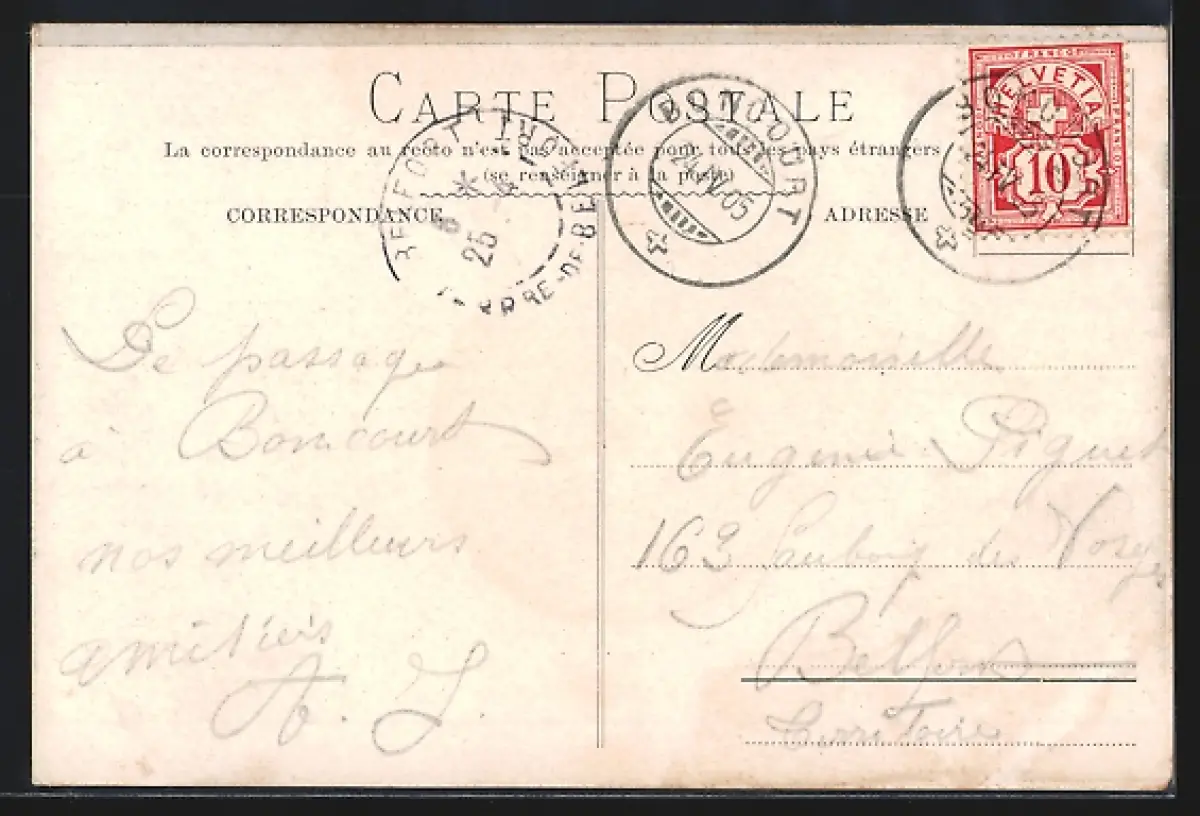 CARTE POSTALE
La correspondance au recto n'est pas acceptée pour tous les pays étrangers
(se renseigner à la poste)
CORRESPONDANCE
ADRESSE
FRANCO
HELVETIA
10
BONCOURT
24.IV.05
BELFORT
25
TERRE-DE-BELFORT
De passage
à Boncourt
nos meilleurs
amitiés
A. J.
Mademoiselle
Eugenie Piguet
163 Faubourg des Vosges
Belfort
Territoire